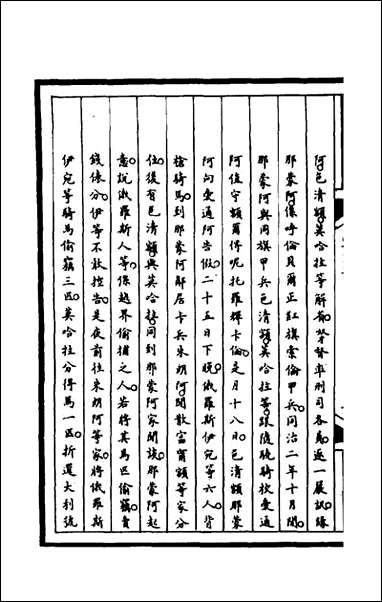 阿色清額莫哈拉等解前努督率刑司各員逐一嚴訊緣
那蒙阿係呼倫貝爾正紅旗索倫甲兵同治二年十月間
那蒙阿與同旗甲兵色清額莫哈拉等跟隨驍騎校愛通
阿值守額爾得呢托羅輝卡倫是月十八日色清額那蒙
阿向愛通阿告假二十五日下晚俄羅斯伊宛等六人皆
搶騎馬到那蒙阿鄰居卡兵朱朗阿閒散富甯額等家分
住後有色清額與莫哈拉同到那蒙阿家閒談那蒙阿起
意說俄羅斯人等係越界偷捕之人若將其馬匹偷竊賣
錢俵分伊等不敢控告是夜前往朱朗阿等家將俄羅斯
伊宛等騎馬偷竊三匹莫哈拉分得馬一匹折還大利號